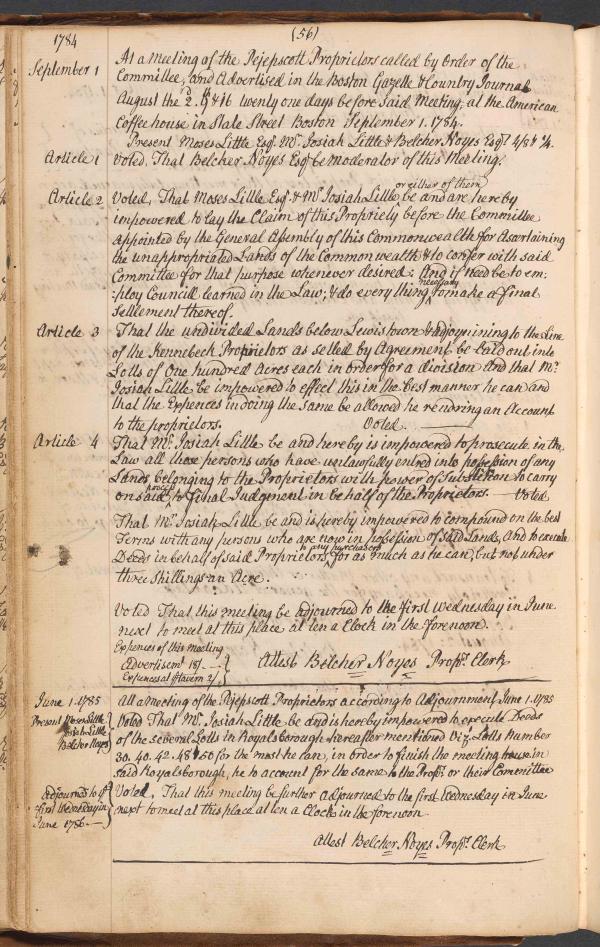 (56)
1784
September 1
At a Meeting of the Pejepscott Proprietors called by Order of the
Committee, and Advertised in the Boston Gazette & Country Journal
August the 2. 9 & 16 twenty one days before said Meeting, at the American
Coffee house in State Street Boston September 1. 1784.
Present Moses Little Esqr. Mr. Josiah Little & Belcher Noyes Esqr
Article 1
Voted, That Belcher Noyes Esqr be moderator of this Meeting.
Article 2
Voted, That Moses Little Esqr. & Mr. Josiah Little or either of them be and are hereby
impowered to lay the Claim of this Propriety before the Committee
appointed by the General Assembly of this Commonwealth for Ascertaining
the unappropriated Lands of the Commonwealth & to confer with said
Committee for that purpose whenever desired: And if need be to em:
:ploy Councill learned in the Law; & do every thing necessary to make a final
settlement thereof.
Article 3
That the undivided Lands below Lewistown & adjoyning to the Line
of the Kennebeck Proprietors as setled by Agreement be laid out into
Lotts of One hundred Acres each in order for a division And that Mr.
Josiah Little be impowered to effect this in the best manner he can and
that the Expences in doing the same be allowed he rendring an Account
to the proprietors. Voted.
Article 4
That Mr. Josiah Little be and hereby is impowered to prosecute in the
Law all those persons who have unlawfully entred into possession of any
Lands belonging to the Proprietors with power of Substitution to carry
on said process to final Judgment in behalf of the Proprietors. Voted
That Mr. Josiah Little be and is hereby impowered to compound on the best
Terms with any persons who are now in possession of said Lands, and to execute
Deeds in behalf of said Proprietors to any purchasers for as much as he can, but not under
three shillings an Acre.
Voted That this meeting be adjourned to the first Wednesday in June
next to meet at this place at ten a Clock in the forenoon.
Expences of this meeting
Advertisemt 18/.
Expences at Tavern
Attest Belcher Noyes Propr. Clerk
June 1. 1785
At a Meeting of the Pejepscott Proprietors according to Adjournment June 1. 1785
Present Moses Little
Josiah Little
Belcher Noyes
Voted That Mr. Josiah Little be and is hereby impowered to execute Deeds
of the several Lotts in Royalsborough hereafter mentioned Viz. Lotts Number
30. 40. 42. 48 & 50 for the most he can, in order to finish the meeting house in
said Royalsborough, he to account for the same to the Propr. or their Committee
adjourned to ye
first Wednesday in
June 1786.
Voted, That this meeting be further adjourned to the first Wednesday in June
next to meet at this place at ten a Clock in the forenoon
Attest Belcher Noyes Propr. Clerk